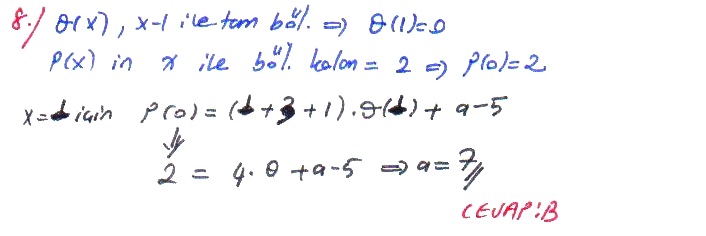 8./ Q(x), x-1 ile tam böl. ⇒ Q(1)=0
P(x) in x ile böl. kalan = 2 ⇒ P(0)=2
x=1 için P(0) = (1+3+1).Q(1) + a-5
⇓
2 = 4.0 + a-5 ⇒ a=7
CEVAP:B